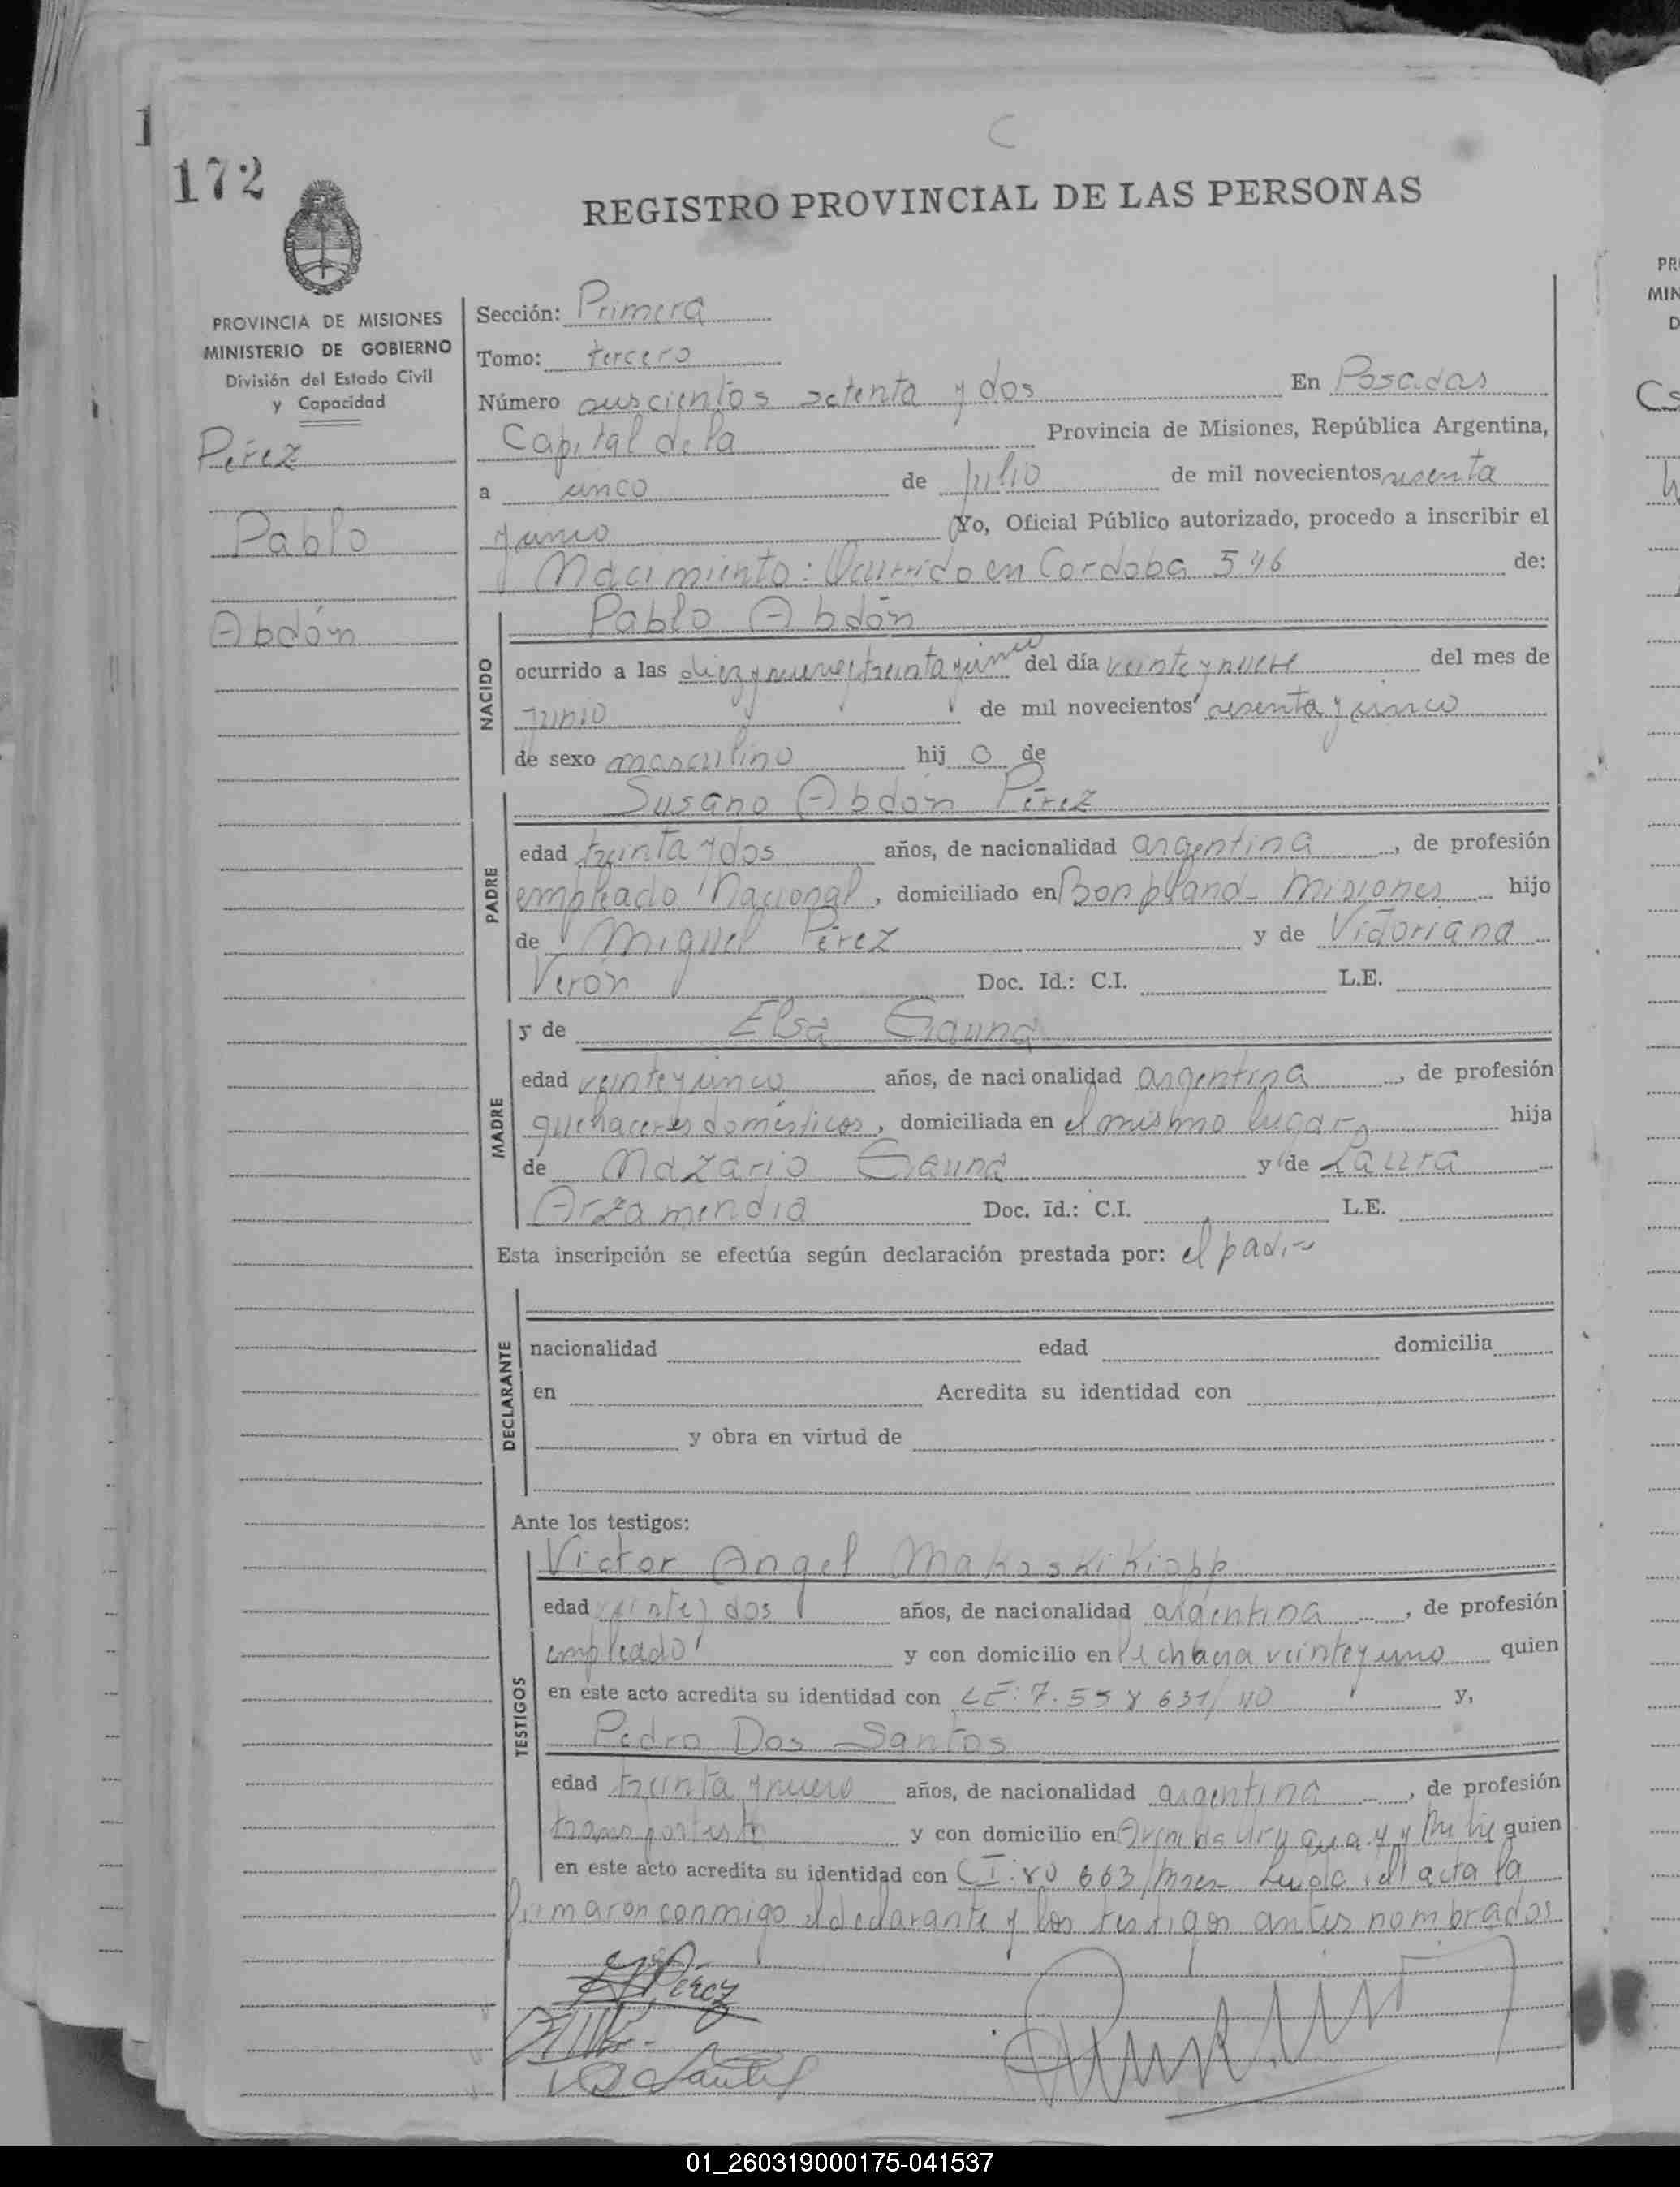 1
172
C
REGISTRO PROVINCIAL DE LAS PERSONAS
PROVINCIA DE MISIONES
MINISTERIO DE GOBIERNO
División del Estado Civil
y Capacidad
Pérez
Pablo
Abdón
Sección: Primera
Tomo: tercero
Número suscientos setenta y dos En Posadas
Capital de la Provincia de Misiones, República Argentina,
a cinco de Julio de mil novecientos sesenta
y cinco Yo, Oficial Público autorizado, procedo a inscribir el
Nacimiento: Ocurrido en Cordoba 546 de:
Pablo Abdón
NACIDO
ocurrido a las diez y nueve y treinta y cinco del día veinte y nueve del mes de
Junio de mil novecientos sesenta y cinco
de sexo masculino hij o de
PADRE
Susano Abdón Pérez
edad treinta y dos años, de nacionalidad argentina, de profesión
empleado Nacional, domiciliado en Bonpland - Misiones hijo
de Miguel Pérez y de Victoriana
Verón Doc. Id.: C.I. L.E.
MADRE
y de Elsa Gauna
edad veinte y cinco años, de nacionalidad argentina, de profesión
quehaceres domésticos, domiciliada en el mismo lugar hija
de Nazario Gauna y de Laura
Arzamendia Doc. Id.: C.I. L.E.
Esta inscripción se efectúa según declaración prestada por: el padre
DECLARANTE
nacionalidad edad domicilia
en Acredita su identidad con
y obra en virtud de
Ante los testigos:
TESTIGOS
Victor Angel Makoski Kiopp
edad veinte y dos años, de nacionalidad argentina, de profesión
empleado y con domicilio en chacra veinte y uno quien
en este acto acredita su identidad con LE: 7.558631/40 y,
Pedro Dos Santos
edad treinta y nueve años, de nacionalidad argentina, de profesión
transportista y con domicilio en Avenida Uruguay y quien
en este acto acredita su identidad con CI: 80 663/Mnes Leida el acta la
firmaron conmigo el declarante y los testigos antes nombrados
Pérez
01_260319000175-041537